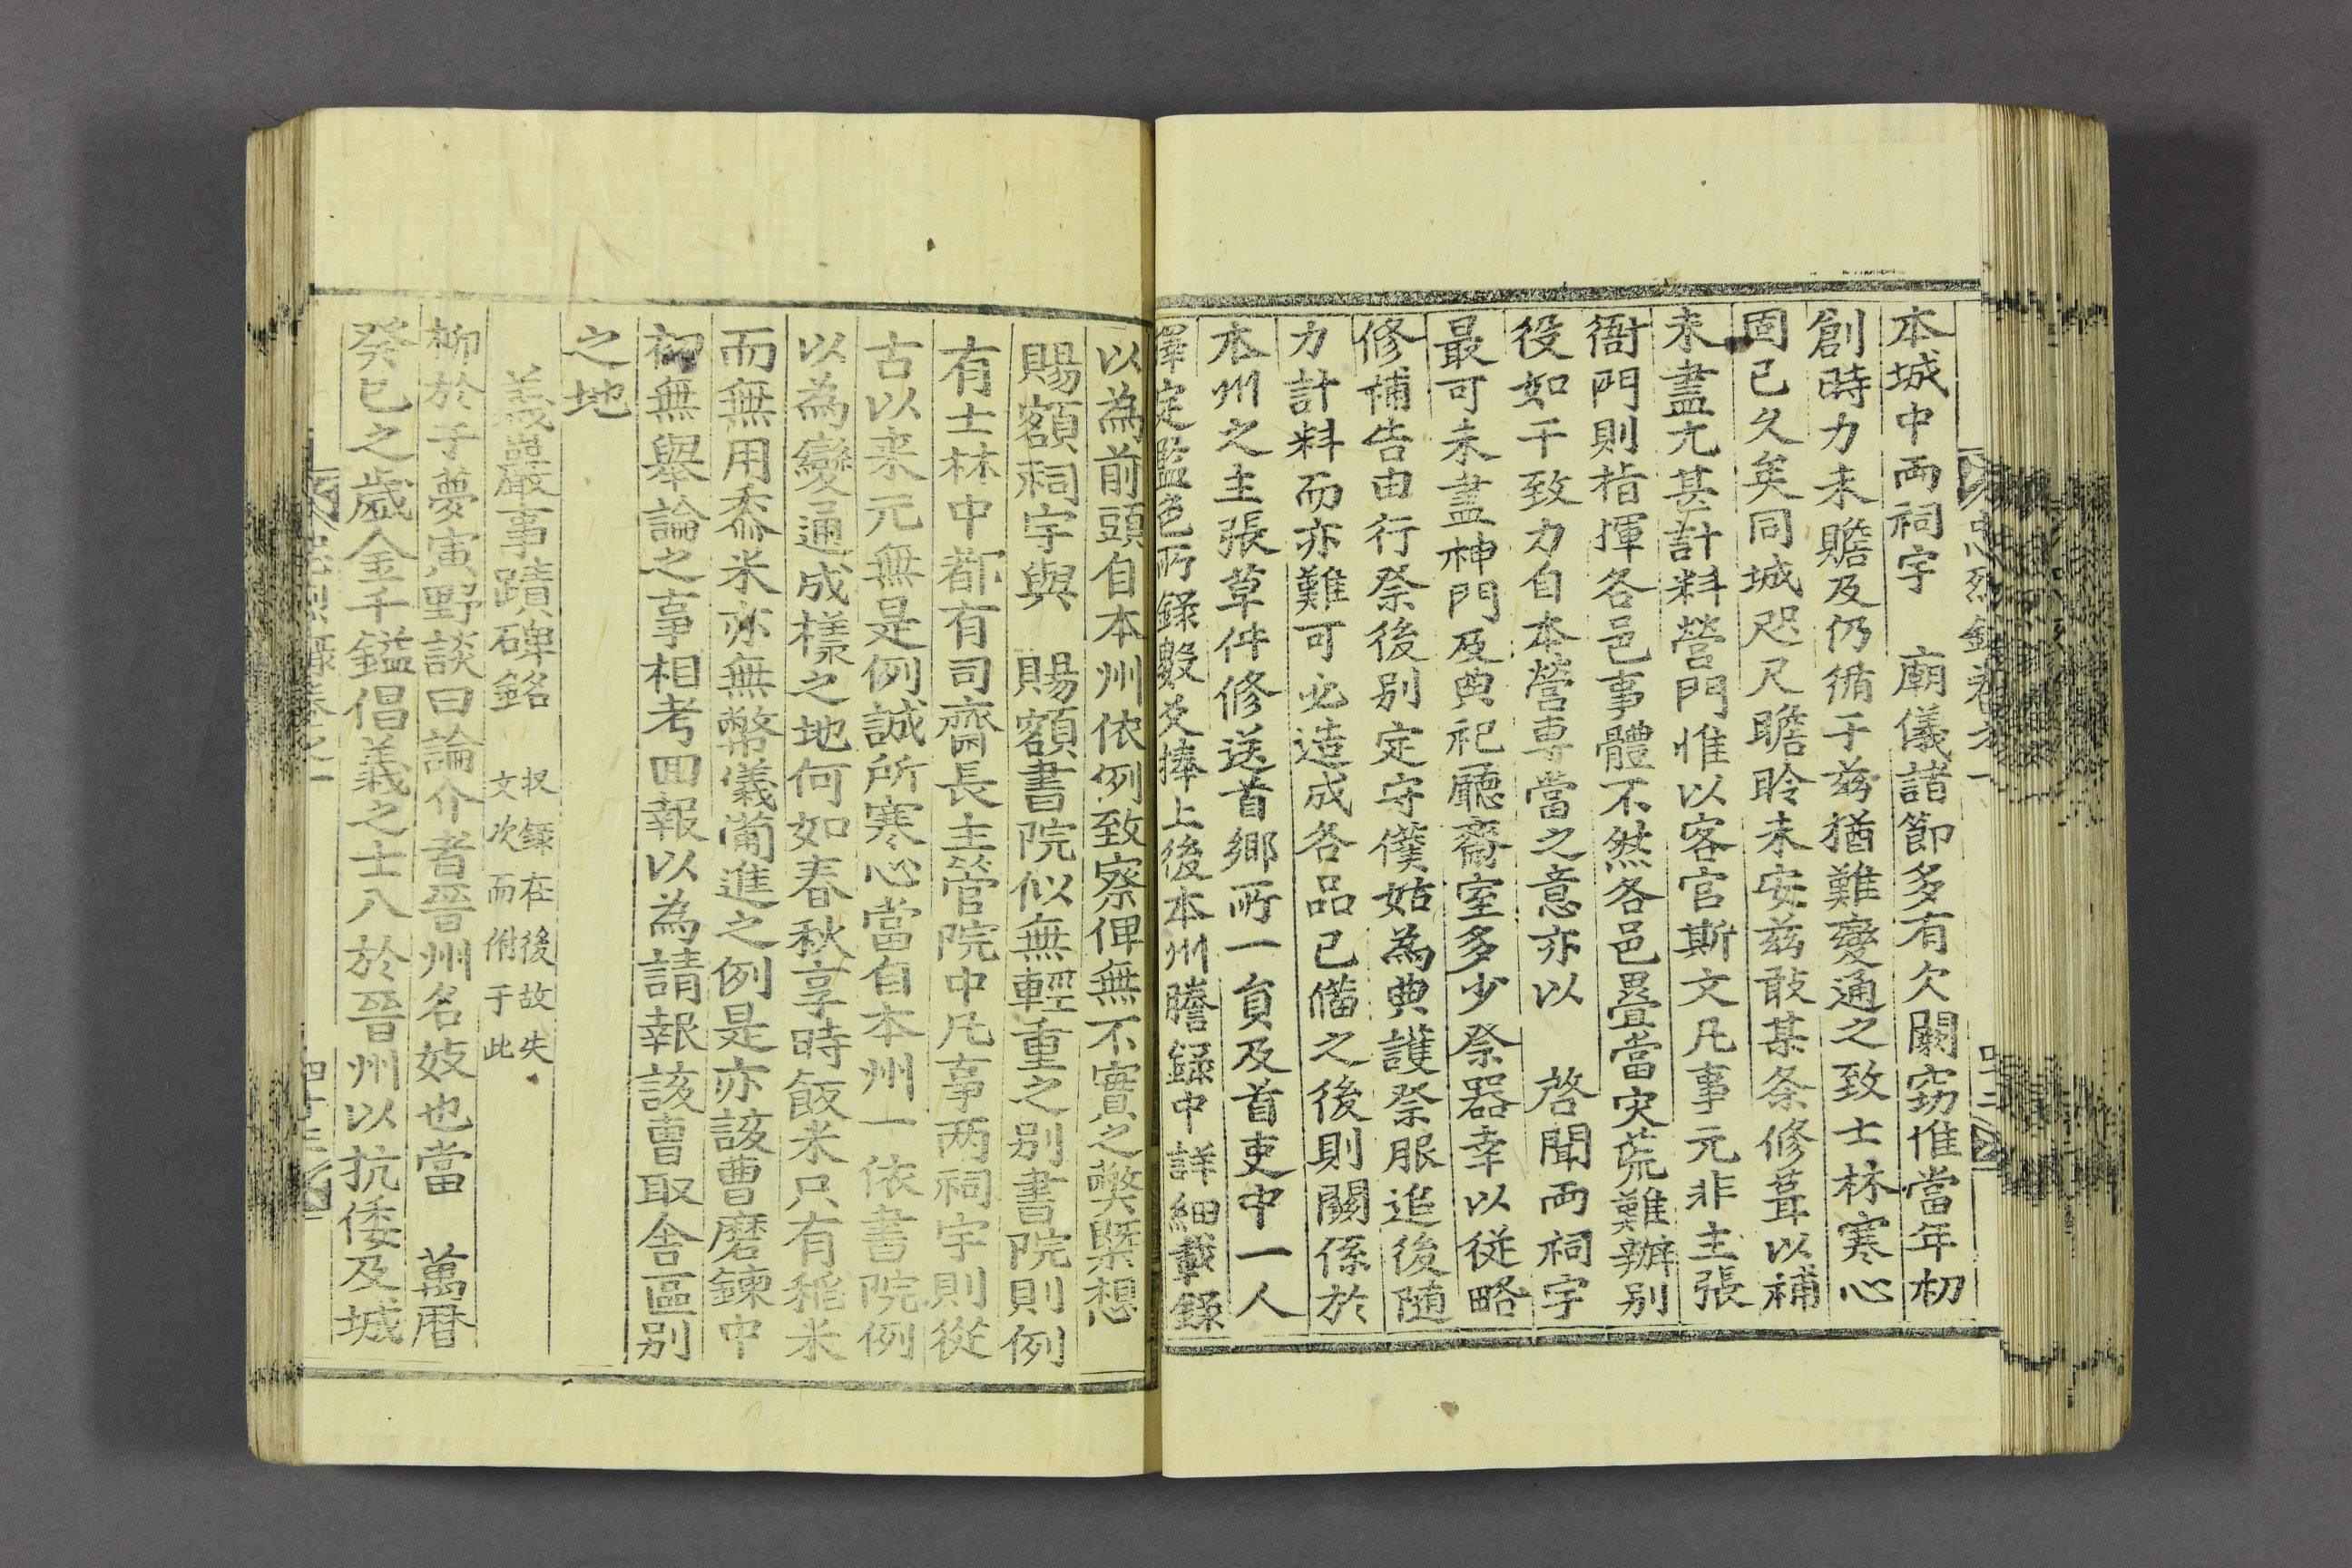 忠烈錄卷之一
四十二
本城中兩祠宇　廟儀諸節多有欠闕窃惟當年初
創時力未贍及仍循于茲猶難變通之致士林寒心
固已久矣同城咫尺瞻聆未安茲敢某条修葺以補
未盡尤甚計料營門惟以客官斯文凡事元非主張
衙門則指揮各邑事體不然各邑疊當灾荒難辦別
役如干致力自本營専當之意亦以　啓聞两祠宇
最可未盡神門及典祀廳齋室多少祭器幸以従略
修補告由行祭後别定守僕姑為典護祭服追後随
力計料而亦難可必造成各品已俻之後則關係於
本州之主張草件修送首鄉所一負及首吏中一人
擇定監色所錄數爻捧上後本州謄録中詳細載錄
以為前頭自本州依例致察俾無不實之獘槩想
賜額祠宇與　賜額書院似無輕重之别書院則例
有士林中都有司齋長主管院中凡事两祠宇則從
古以来元無是例誠所寒心當自本州一依書院例
以為變通成樣之地何如春秋享時飯米只有稻米
而無用黍米亦無幣儀葡進之例是亦該曹磨鍊中
初無舉論之事相考回報以為請報該曹取舍區别
之地
義嵒事蹟碑銘　权錄在後故失
文次而附于此
柳於于夢寅野談曰論介者晉州名妓也當　萬曆
癸巳之歲金千鎰倡義之士入於晉州以抗倭及城
忠烈錄卷之一
四十三